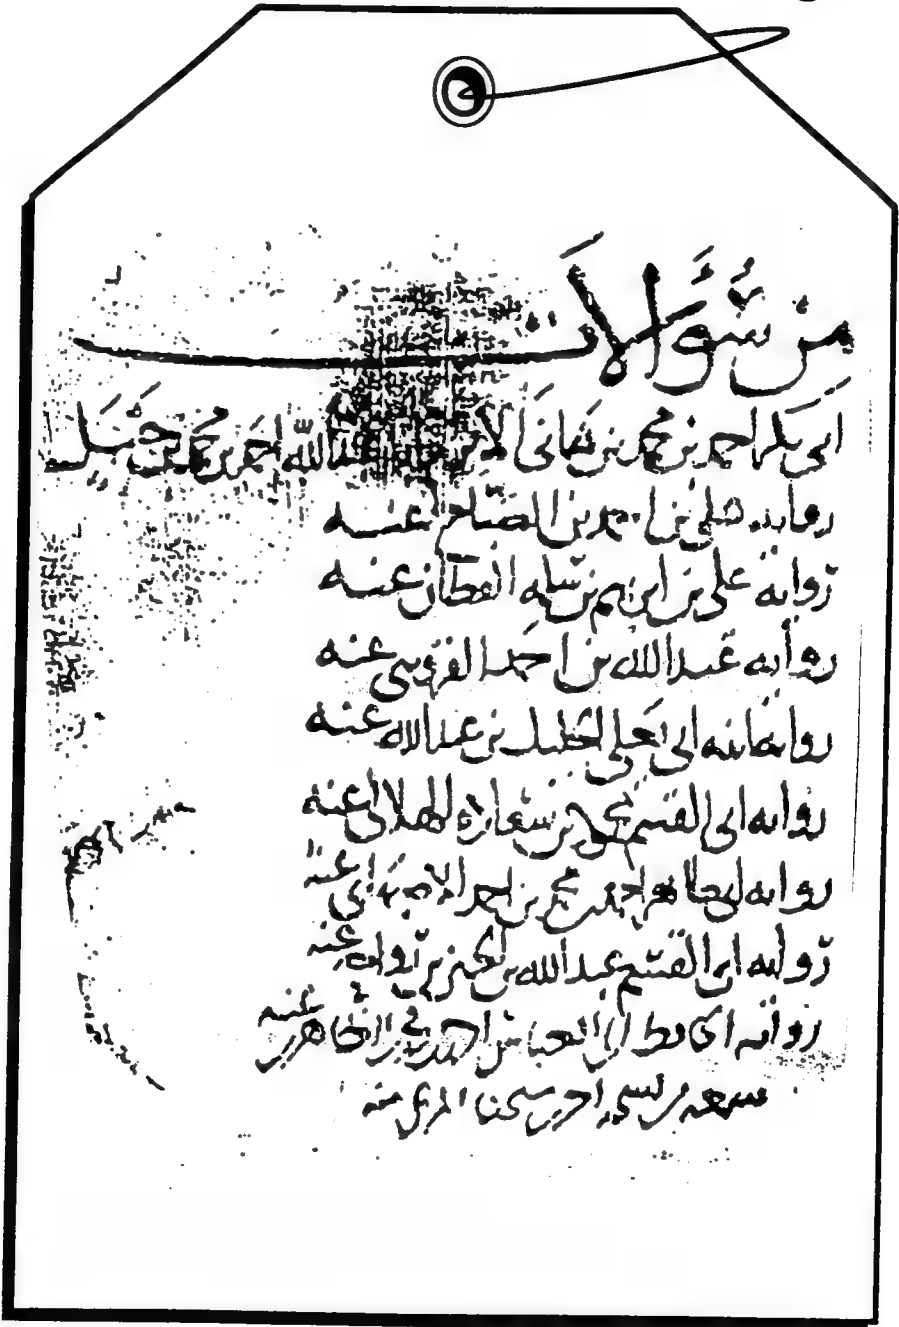 من سؤالات
ابي بكر احمد بن محمد بن هانئ الأثرم ابا عبد الله احمد بن محمد بن حنبل
رواية علي بن احمد بن الصباح عنه
رواية علي بن ابراهيم بن سلمه القطان عنه
رواية عبد الله بن احمد القزويني عنه
رواية ابي يعلى الخليل بن عبد الله عنه
رواية ابي القسم عنه
رواية ابي طاهر احمد بن محمد بن احمد الاصبهاني عنه
رواية ابي القسم عبد الله بن الحسين بن رواحه عنه
رواية الحافظ ابي العباس احمد بن الظاهري عنه
سمعه احمد المزي منه